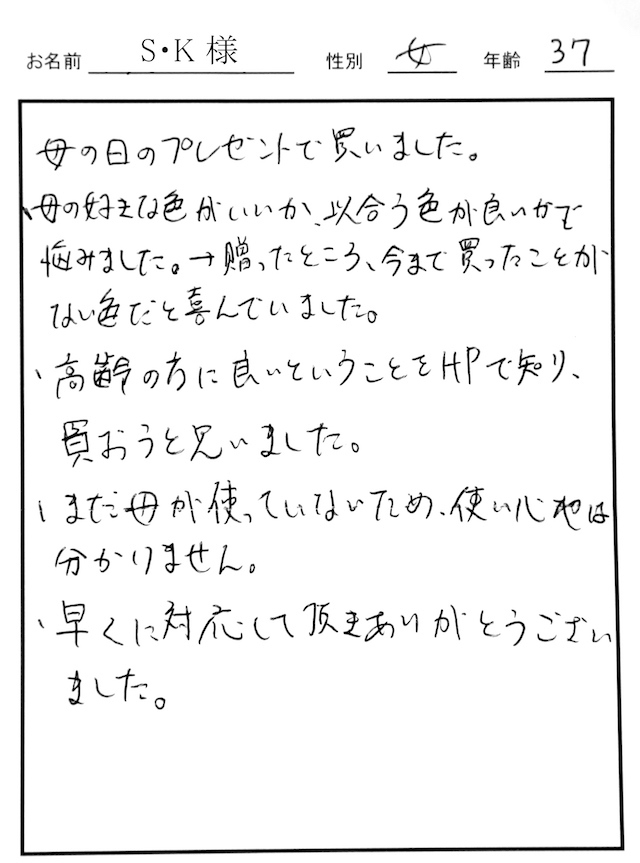 お名前 S・K 様 性別 女 年齢 37
母の日のプレゼントで買いました。
、母の好きな色がいいか、以合う色が良いかで
悩みました。→贈ったところ、今まで買ったことが
ない色だと喜んでいました。
、高齢の方に良いということをHPで知り、
買おうと思いました。
、まだ母が使っていないため、使い心地は
分かりません。
、早くに対応して頂きありがとうござい
ました。